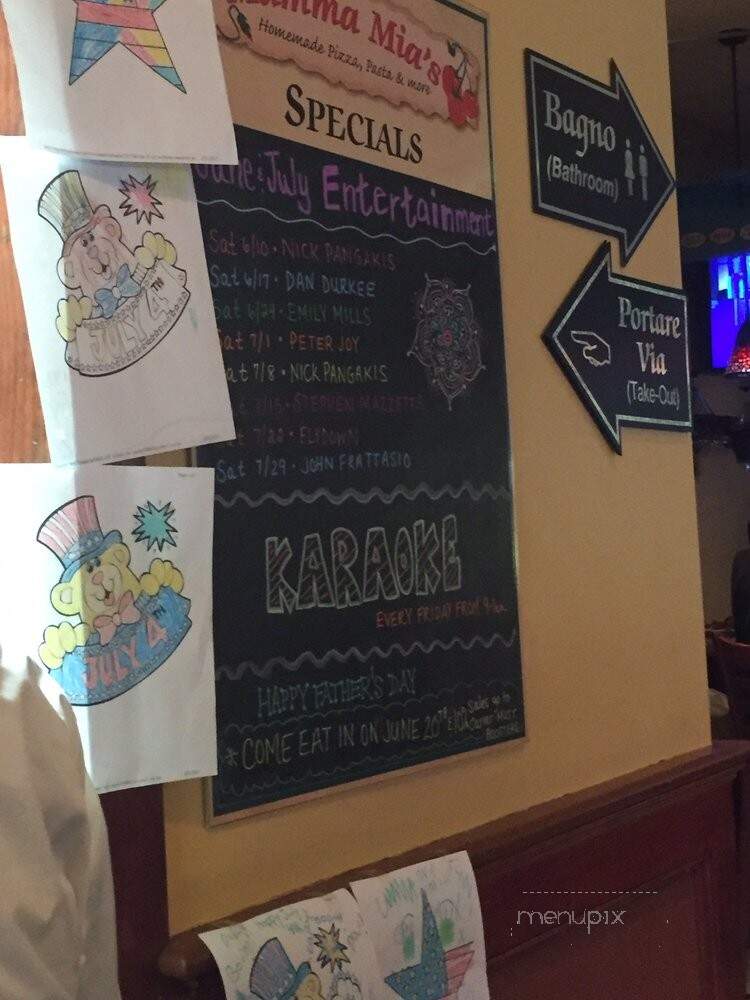 Mamma Mia's
Homemade Pizza, Pasta & more
SPECIALS
June & July Entertainment
Sat 6/10 • NICK PANGAKIS
Sat 6/17 • DAN DURKEE
Sat 6/24 • EMILY MILLS
Sat 7/1 • PETER JOY
Sat 7/8 • NICK PANGAKIS
Sat 7/15 • STEPHEN MAZZETTA
Sat 7/22 • ELYDOWN
Sat 7/29 • JOHN FRATTASIO
KARAOKE
EVERY FRIDAY FROM 9-
HAPPY FATHER'S DAY
* COME EAT IN ON JUNE 20TH
Bagno
(Bathroom)
Portare
Via
(Take-Out)
JULY 4TH
JULY 4TH
menupix